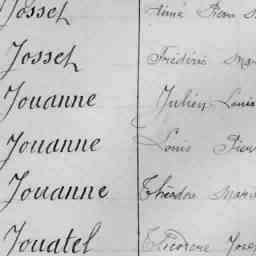 Josset Pierre
Josset Frédéric Mar
Jouanne Julien Louis
Jouanne Louis Pier
Jouanne Théodore Marie
Jouatel Théodore Jose